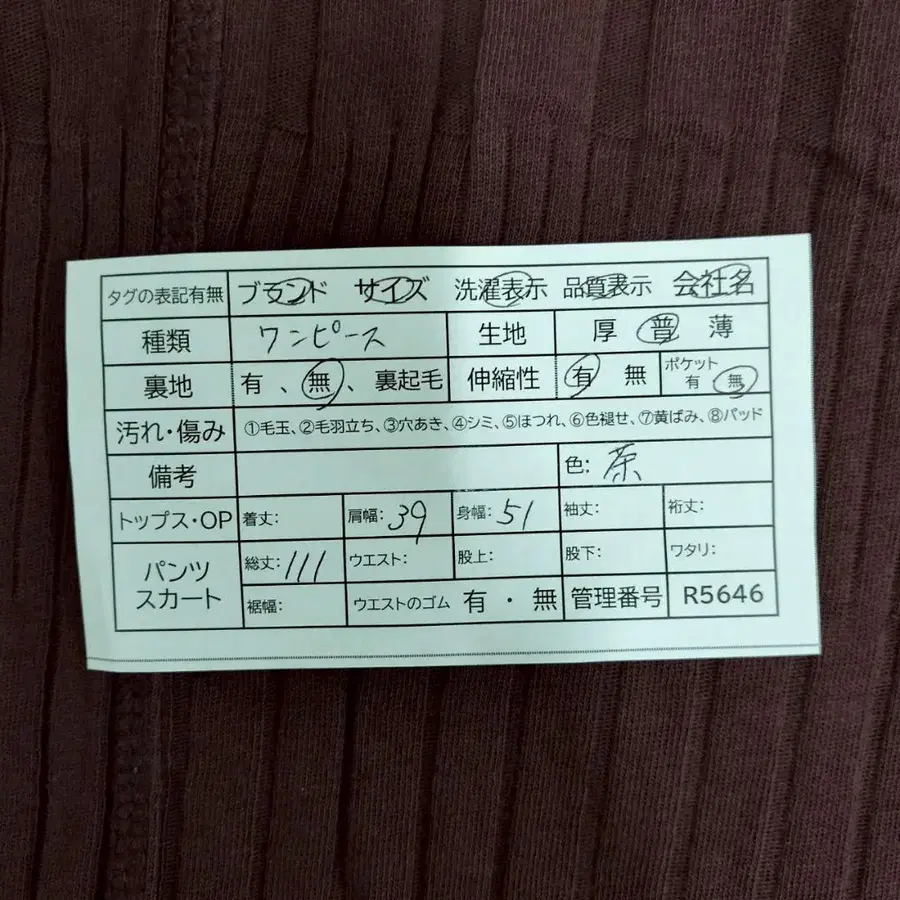 タグの表記有無 ブランド サイズ 洗濯表示 品質表示 会社名
種類 ワンピース 生地 厚 普 薄
裏地 有 、 無 、 裏起毛 伸縮性 有 無 ポケット 有 無
汚れ・傷み ①毛玉、②毛羽立ち、③穴あき、④シミ、⑤ほつれ、⑥色褪せ、⑦黄ばみ、⑧パッド
備考 色: 茶
トップス・OP 着丈: 肩幅: 39 身幅: 51 袖丈: 裄丈:
パンツ スカート 総丈: 111 ウエスト: 股上: 股下: ワタリ:
裾幅: ウエストのゴム 有 ・ 無 管理番号 R5646